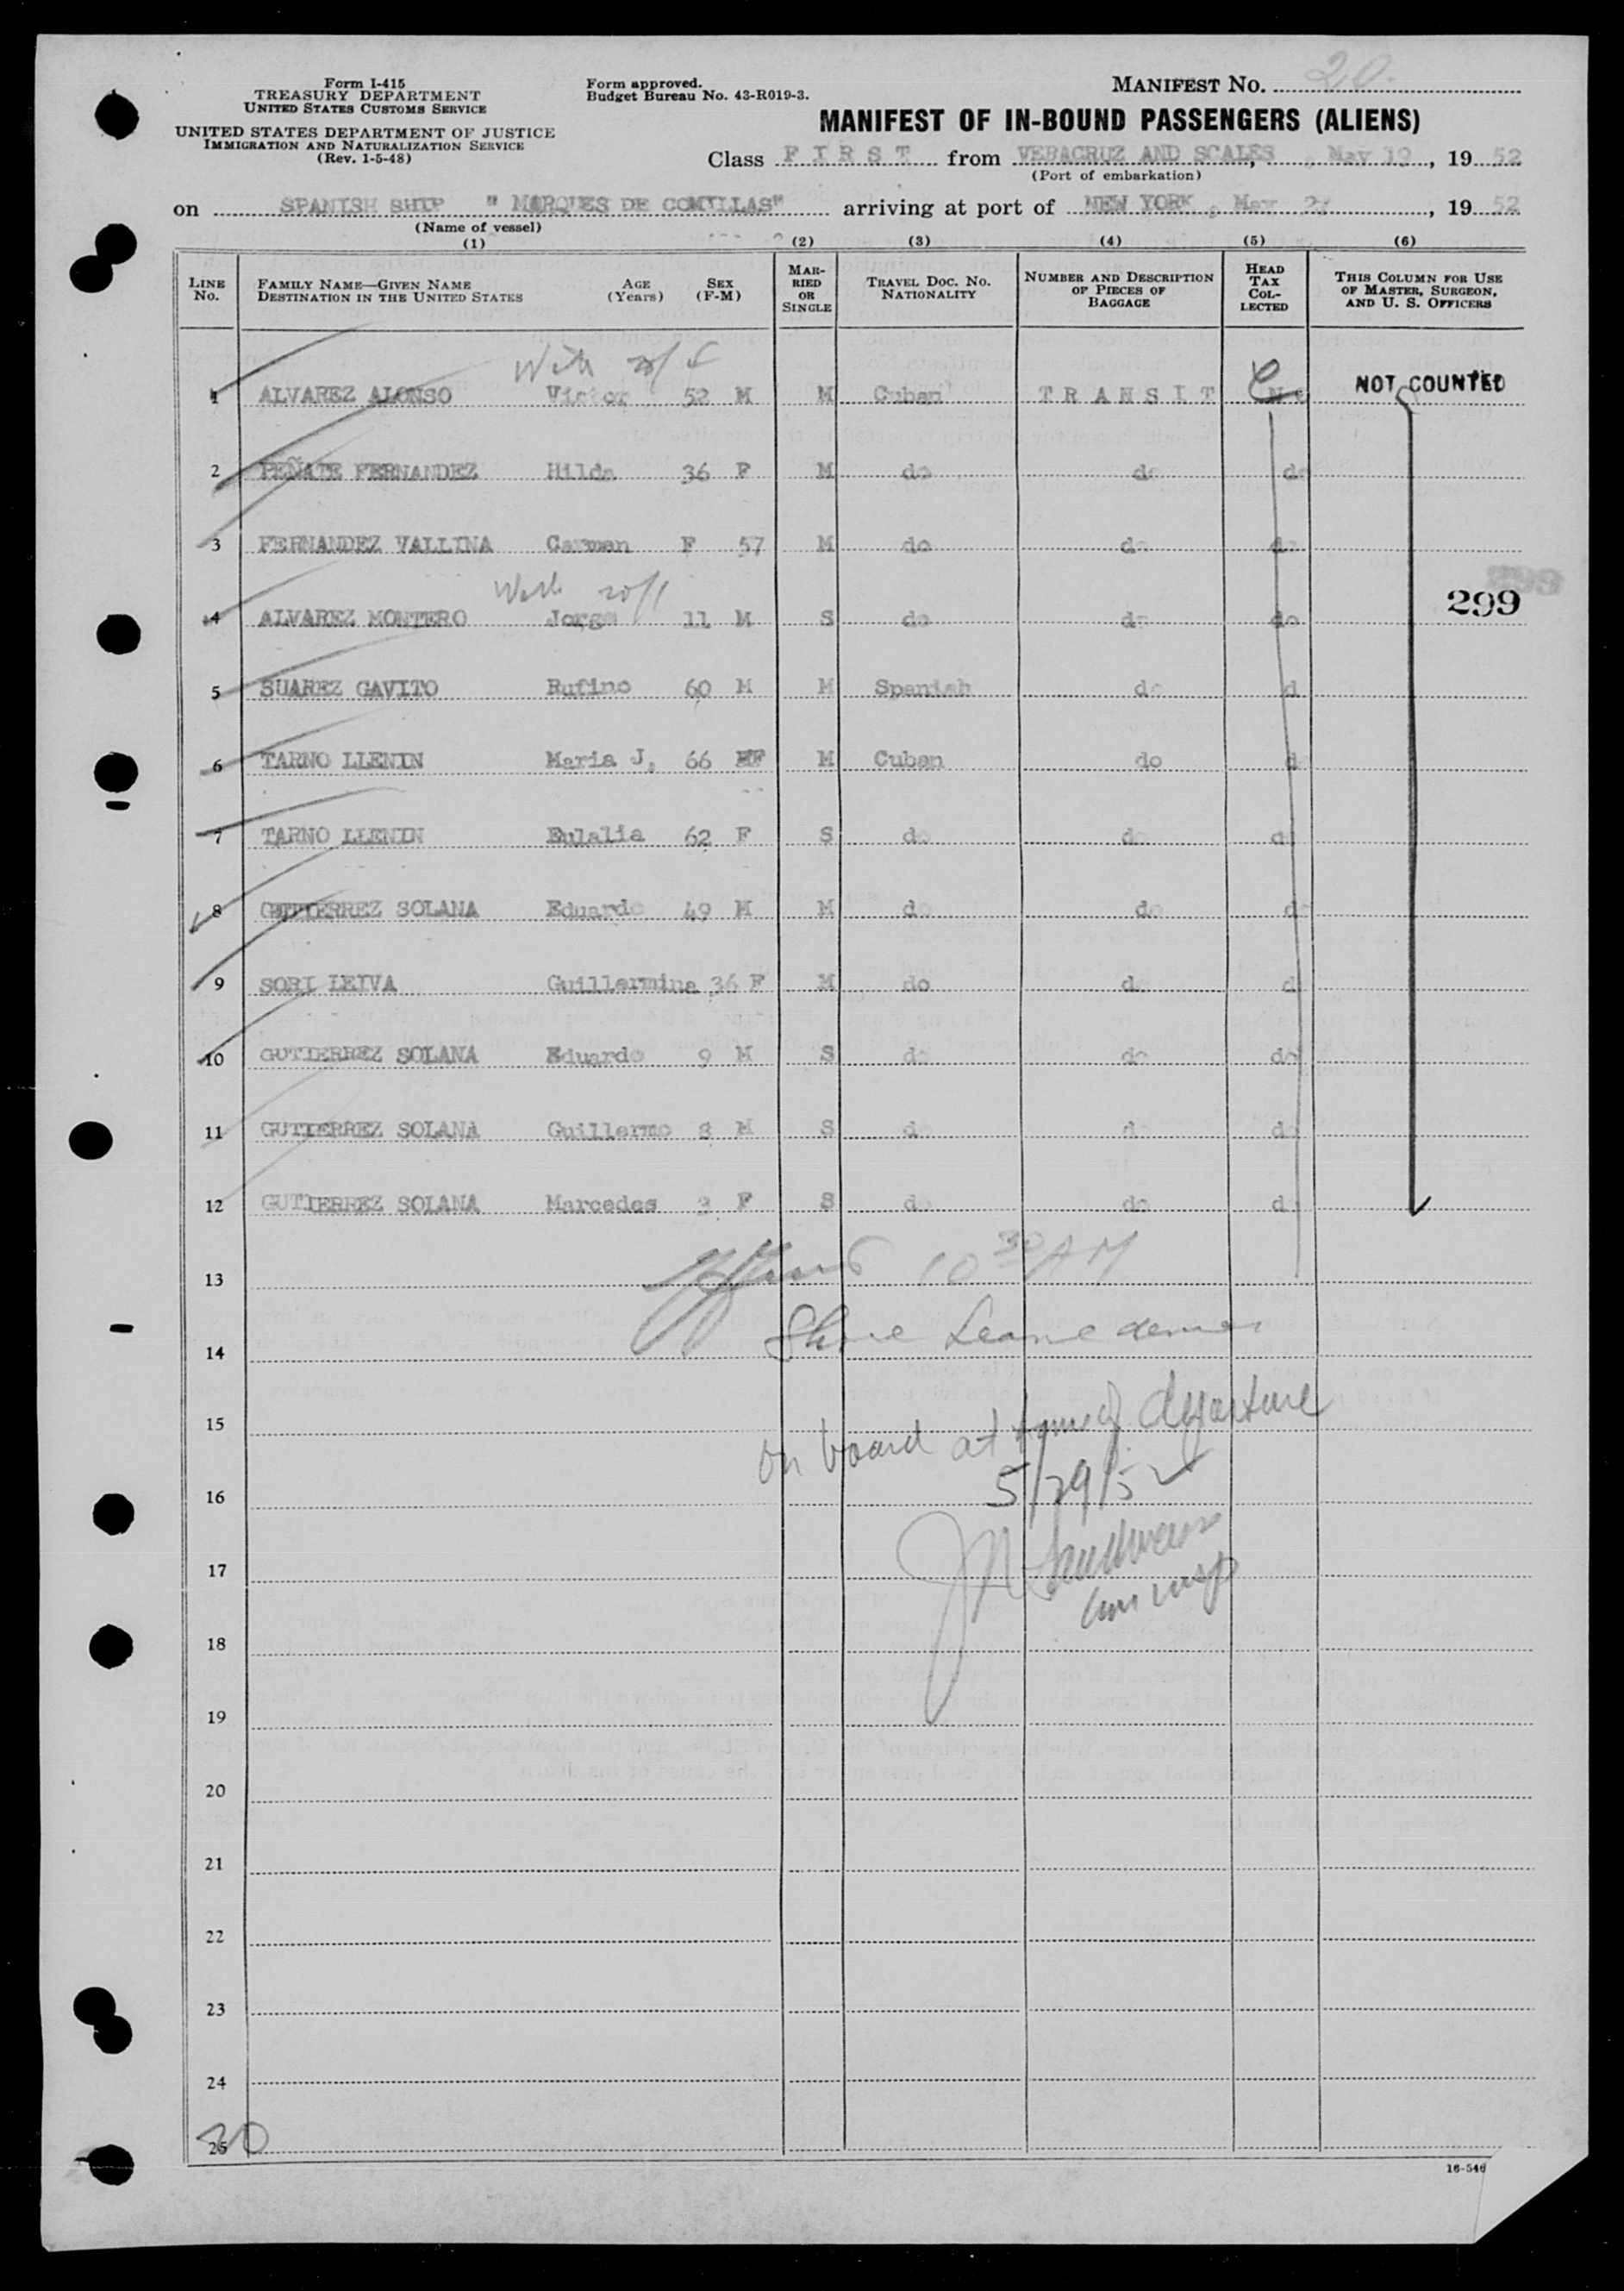 Form I-415
TREASURY DEPARTMENT
UNITED STATES CUSTOMS SERVICE
UNITED STATES DEPARTMENT OF JUSTICE
IMMIGRATION AND NATURALIZATION SERVICE
(Rev. 1-5-48)
Form approved.
Budget Bureau No. 43-R019-3.
MANIFEST No. 20.
MANIFEST OF IN-BOUND PASSENGERS (ALIENS)
Class F I R S T from VERACRUZ AND SCALES, May 19, 19 52
(Port of embarkation)
on SPANISH SHIP " MARQUES DE COMILLAS" arriving at port of NEW YORK, May, 19 52
(Name of vessel)
(1) (2) (3) (4) (5) (6)
LINE No. FAMILY NAME—GIVEN NAME DESTINATION IN THE UNITED STATES AGE (Years) SEX (F-M) MARRIED OR SINGLE TRAVEL DOC. No. NATIONALITY NUMBER AND DESCRIPTION OF PIECES OF BAGGAGE HEAD TAX COLLECTED THIS COLUMN FOR USE OF MASTER, SURGEON, AND U. S. OFFICERS
1 ALVAREZ ALONSO Victor 52 M M Cuban T R A N S I T NOT COUNTED
2 PEÑATE FERNANDEZ Hilda 36 F M do do do
3 FERNANDEZ VALLINA Carmen F 57 M do do do
4 ALVAREZ MONTERO Jorge 11 M S do do do
299
5 SUAREZ GAVITO Rufino 60 M M Spanish do d
6 TARNO LLENIN Maria J. 66 F M Cuban do d
7 TARNO LLENIN Eulalia 62 F S do do d
8 GUTIERREZ SOLANA Eduardo 49 M M do do do
9 SORI LEIVA Guillermina 36 F M do do d
10 GUTIERREZ SOLANA Eduardo 9 M S do do do
11 GUTIERREZ SOLANA Guillermo 8 M S do do do
12 GUTIERREZ SOLANA Marcedes 3 F S do do d
13 10 30 AM
14 Shore Leave
15 on board at time of departure
16 5/29/52
17 Imm insp
18
19
20
21
22
23
24
25 20
16-546